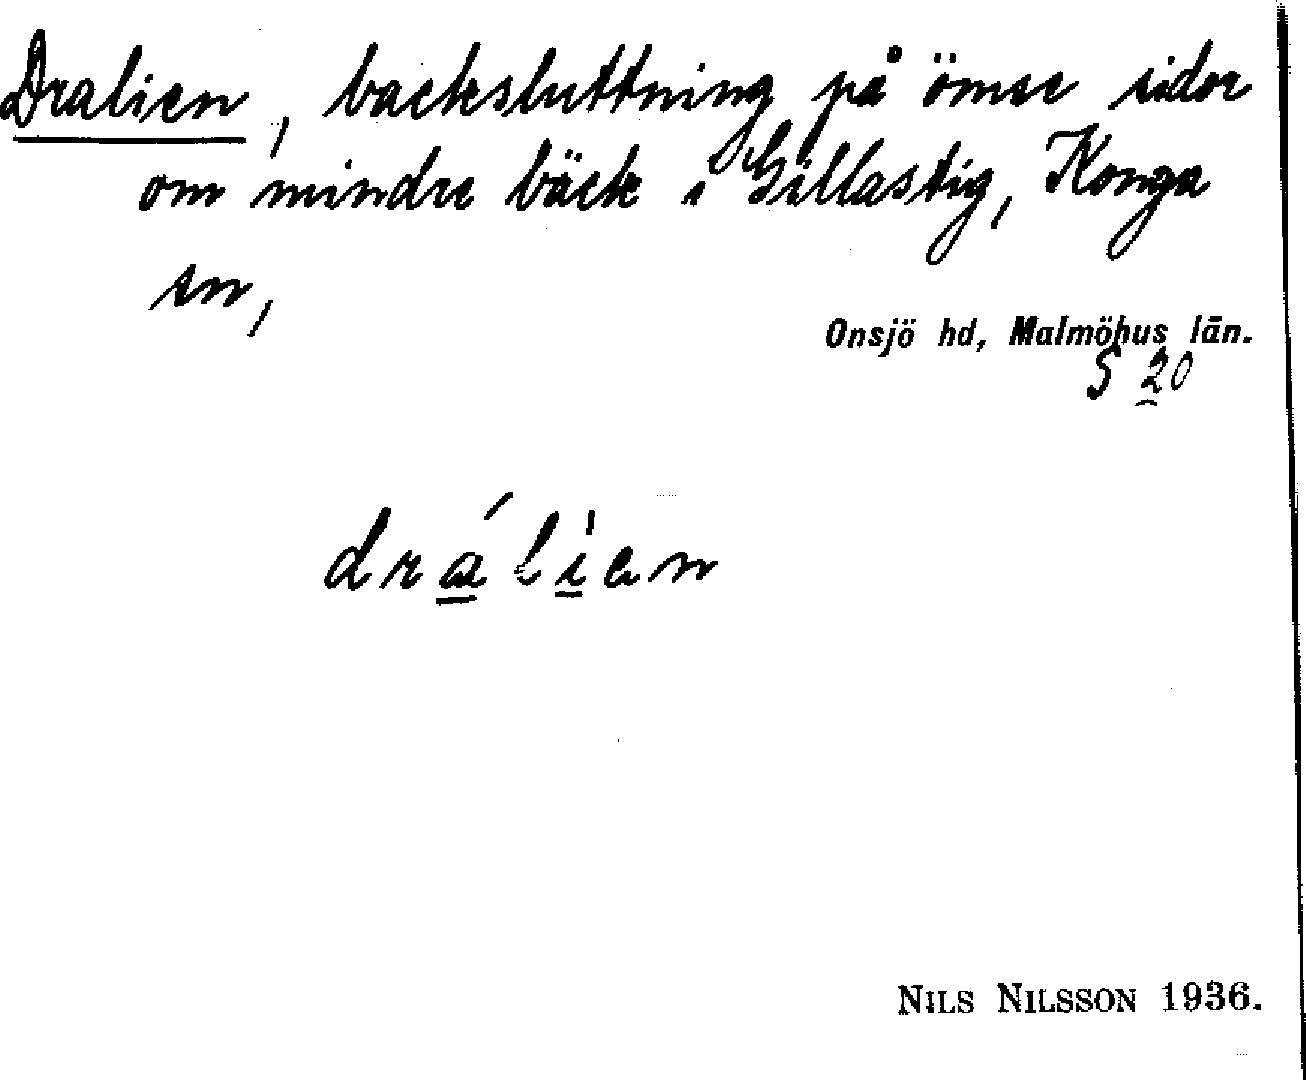 Dralien, backsluttning på ömse sidor
om mindre bäck i Gillastig, Konga
sn,
Onsjö hd, Malmöhus län.
S 20
drálien
NILS NILSSON 1936.